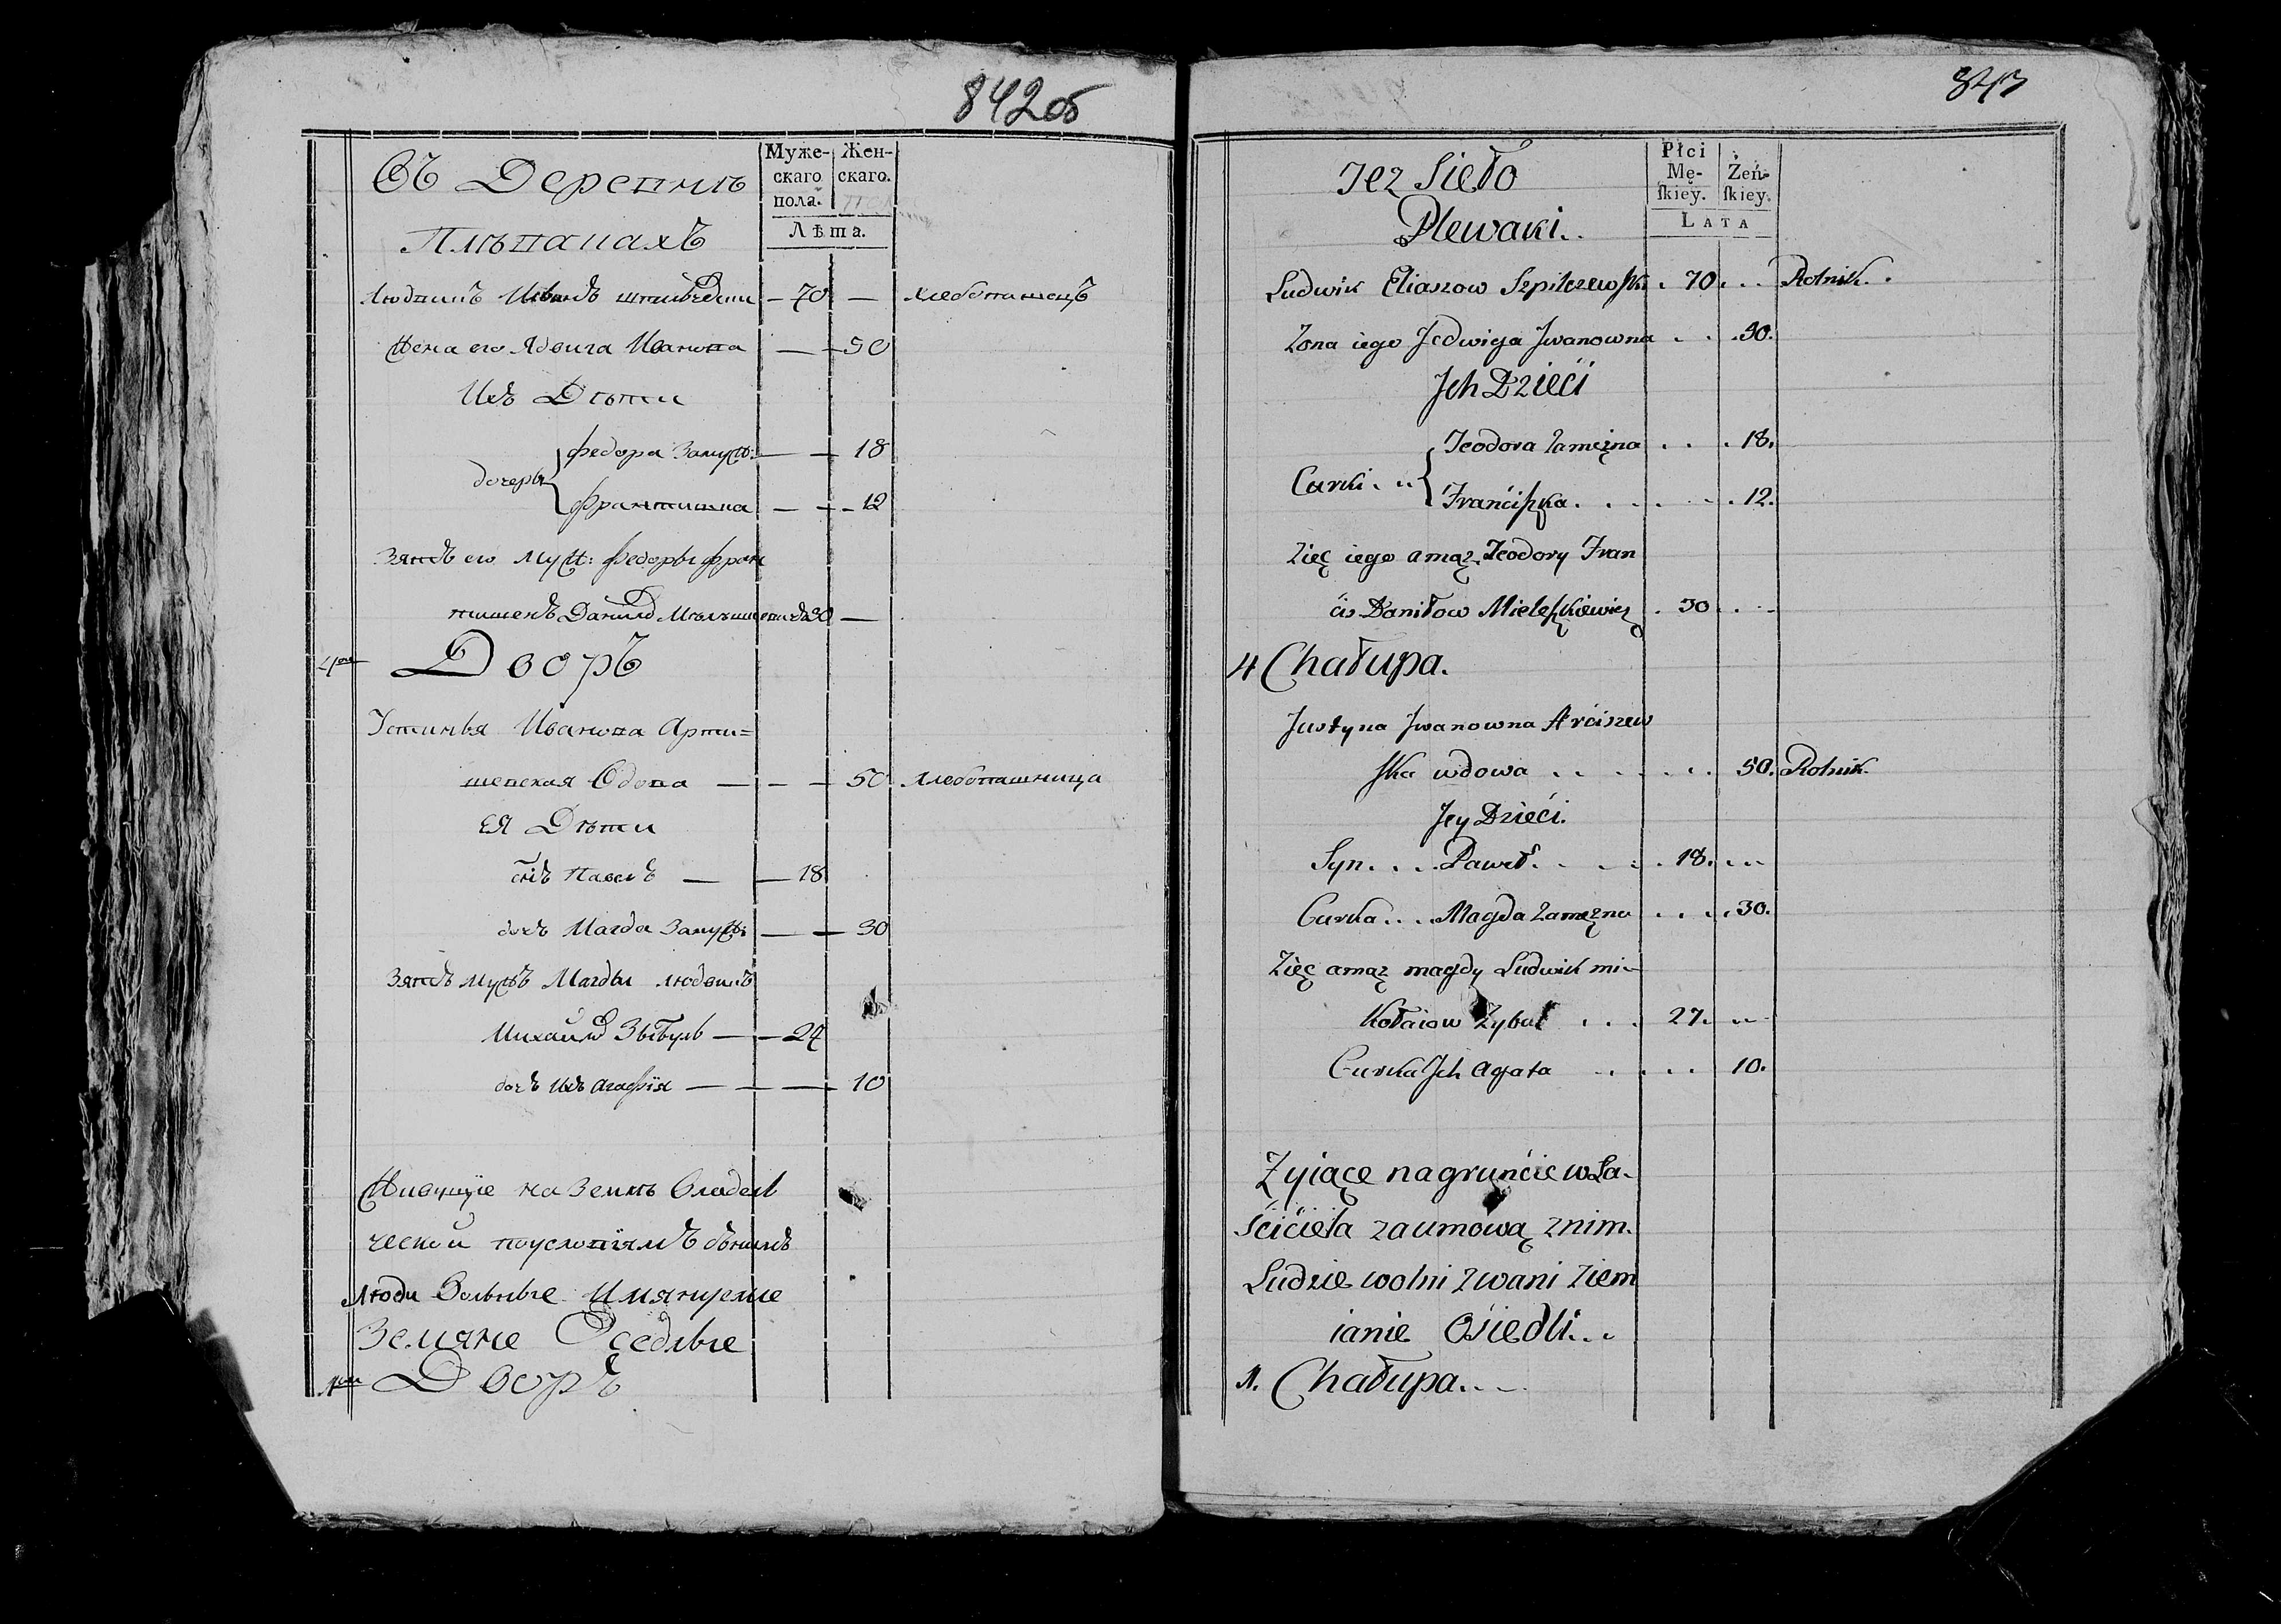 842об
Въ Деревнѣ
Муже-
скаго
пола.
Жен-
скаго.
Лѣта.
Плѣвакахъ
Людвикъ 70 — хлебопашецъ
Жена его Ядвига Иванова — 50
Ихъ Дѣти
дочеры
Федора Замуж: — 18
Франтишка — 12
Зять его муж: Федоры Фран
тишекъ Данил 30 —
4ой Дворъ
Устинья Иванова Арти=
шевская Вдова — 50 хлебопашница
Ея Дѣти
сынъ Павелъ — 18
дочь Магда Замуж: — 30
Зять мужъ Магды Людвикъ
Михайл Зыбуль — 27
дочь Ихъ Агафія — 10
Живущіе на Землѣ Владель
ческой поусловіямъ съ нимъ
Люди Вольные Имянуемые
Земяне Оседлые
1ой Дворъ
843
Jez Sieło
Płci
Mę-
ſkiey.
Żeń-
ſkiey.
Lata
Plewaki..
Ludwik Eliaszow Szpilczewſki . 70. . . Rolnik.
Zona iego Jedwiga Jwanowna . . . 50.
Jch Dzieći
Curki . ..
Teodora zamężna . . . 18.
Franćiſzka. . . . . . . 12.
Zięć iego a mąz Teodory Fran
ćis Daniłow Mieleſzkiewicz . 30 . . -
4 Chałupa.
Justyna Jwanowna Arciszew
ſka wdowa . . . . . . 50. Rolnik.
Jey Dzieći.
Syn. . . . Paweł. . . . . 18. . . .
Curka. . . . Magda zamęzna . . . . 30.
Zięć a mąz magdy Ludwik mi-
kołaiow Zybul . . . 27. . . -
Curka Jch Agata . . . . 10.
Zyiące na grunćie wła-
śćićiela za umową z nim.
Ludzie wolni zwani ziem
ianie Ośiedli...
1. Chałupa. . . -